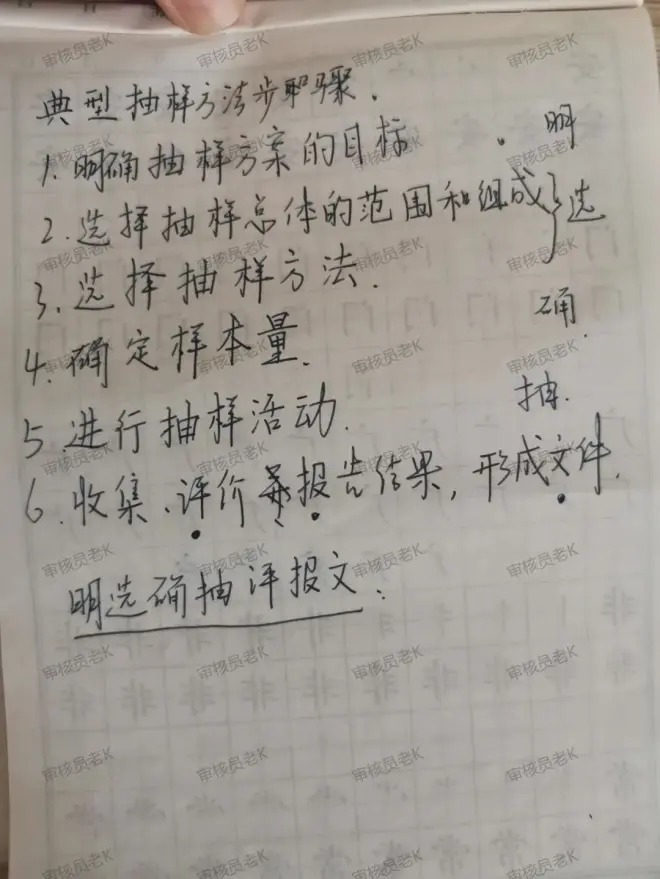 典型抽样方法步骤.
1.明确抽样方案的目标 . 明
2.选择抽样总体的范围和组成 } 选
3.选择抽样方法.
确.
4.确定样本量.
抽.
5.进行抽样活动.
6.收集、评价、报告结果，形成文件.
明选确抽评报文.
审核员老K